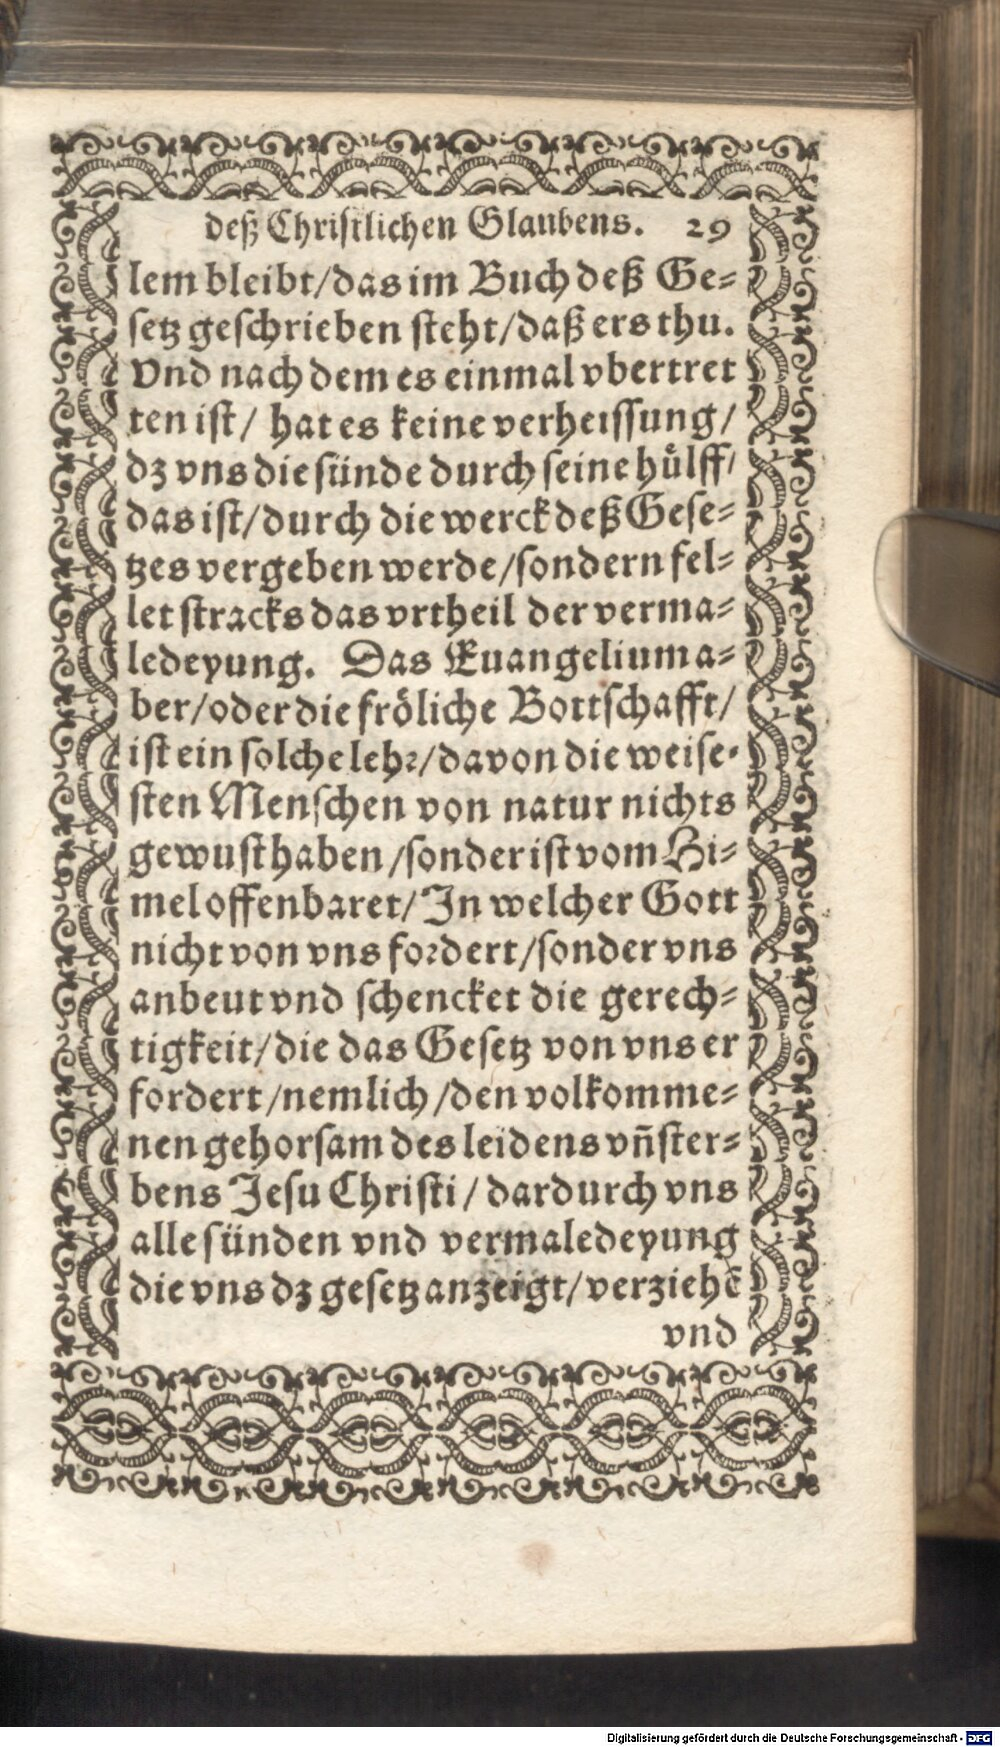 deß Christlichen Glaubens. 29
lem bleibt/das im Buch deß Ge-
setz geschrieben steht/daß ers thu.
Vnd nach dem es einmal vbertret
ten ist/ hat es keine verheissung/
dz vns die sünde durch seine hülff/
das ist/durch die werck deß Gese-
tzes vergeben werde/sondern fel-
let stracks das vrtheil der verma-
ledeyung. Das Euangelium a-
ber/oder die fröliche Bottschafft/
ist ein solche lehr/davon die weise-
sten Menschen von natur nichts
gewust haben/sonder ist vom Hi-
mel offenbaret/In welcher Gott
nicht von vns fordert/sonder vns
anbeut vnd schencket die gerech-
tigkeit/die das Gesetz von vns er
fordert/nemlich/den volkomme-
nen gehorsam des leidens vñ ster-
bens Jesu Christi/ dardurch vns
alle sünden vnd vermaledeyung
die vns dz gesetz anzeigt/verziehẽ
vnd
Digitalisierung gefördert durch die Deutsche Forschungsgemeinschaft - DFG